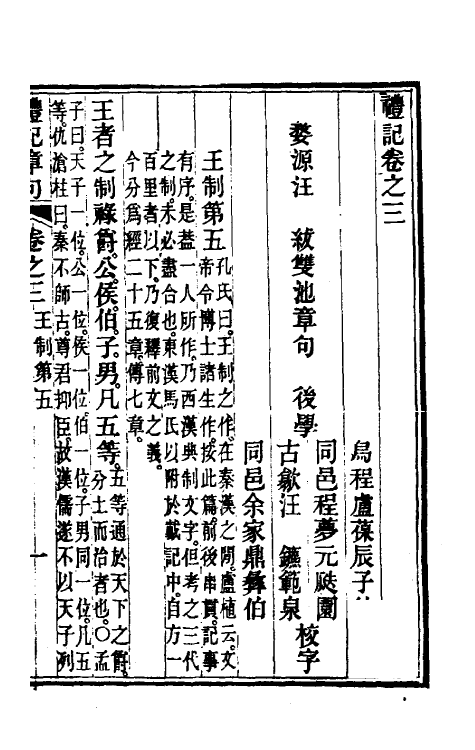 禮記卷之三
烏程盧葆辰子
婺源汪 紱雙池章句 後學
同邑程夢元颷園
古歙汪 鑣範泉 校字
同邑余家鼎彝伯
王制第五 孔氏曰。王制之作。在秦漢之閒。盧植云。文
帝令博士諸生作。按此篇。前後串貫。記事
有序。是蓋一人所作。乃西漢典制文字。但考之三代
之制。未必盡合也。東漢馬氏以附於戴記中。自方一
百里者以下。乃復釋前文之義。
今分爲經二十五章。傳七章。
王者之制祿爵。公。侯。伯。子。男。凡五等。五等通於天下之爵。
分土而治者也。○孟
子曰。天子一位。公一位。侯一位。伯一位。子男同一位。凡五
等。仇滄柱曰。秦不師古。尊君抑臣。故漢儒遂不以天子列
禮記章句 卷之三 王制第五 一